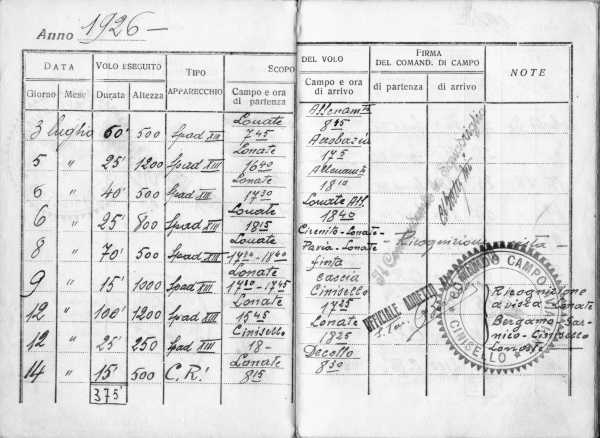 Anno 1926 —
DATA VOLO ESEGUITO TIPO APPARECCHIO SCOPO DEL VOLO FIRMA DEL COMAND. DI CAMPO NOTE
Giorno Mese Durata Altezza Campo e ora di partenza Campo e ora di arrivo di partenza di arrivo
3 luglio 60' 500 Spad XIII Lonate 7 45 Allenamto 8 45
5 " 25' 1200 Spad XIII Lonate 16 40 Acrobazia 17 5
6 " 40' 500 Spad XIII Lonate 17 30 Allenamto 18 10
6 " 25' 800 Spad XIII Lonate 18 15 Lonate All. 18 40
8 " 70' 500 Spad XIII Lonate Circuito - Lonate - Pavia - Lonate - Ricognizione
9 " 15' 1000 Spad XIII Lonate 17 30 - 17 45 finta caccia
12 " 100' 1200 Spad XIII Lonate 15 45 Cinisello 17 25 Ricognizione a vista Lonate Bergamo - Sarnico - Cinisello Lonate
12 " 25' 250 Spad XIII Cinisello 18 - Lonate 18 25
14 " 15' 500 C.R. Lonate 8 15 Decollo 8 30
375'
UFFICIALE ADDETTO
COMANDO CAMPO
CINISELLO